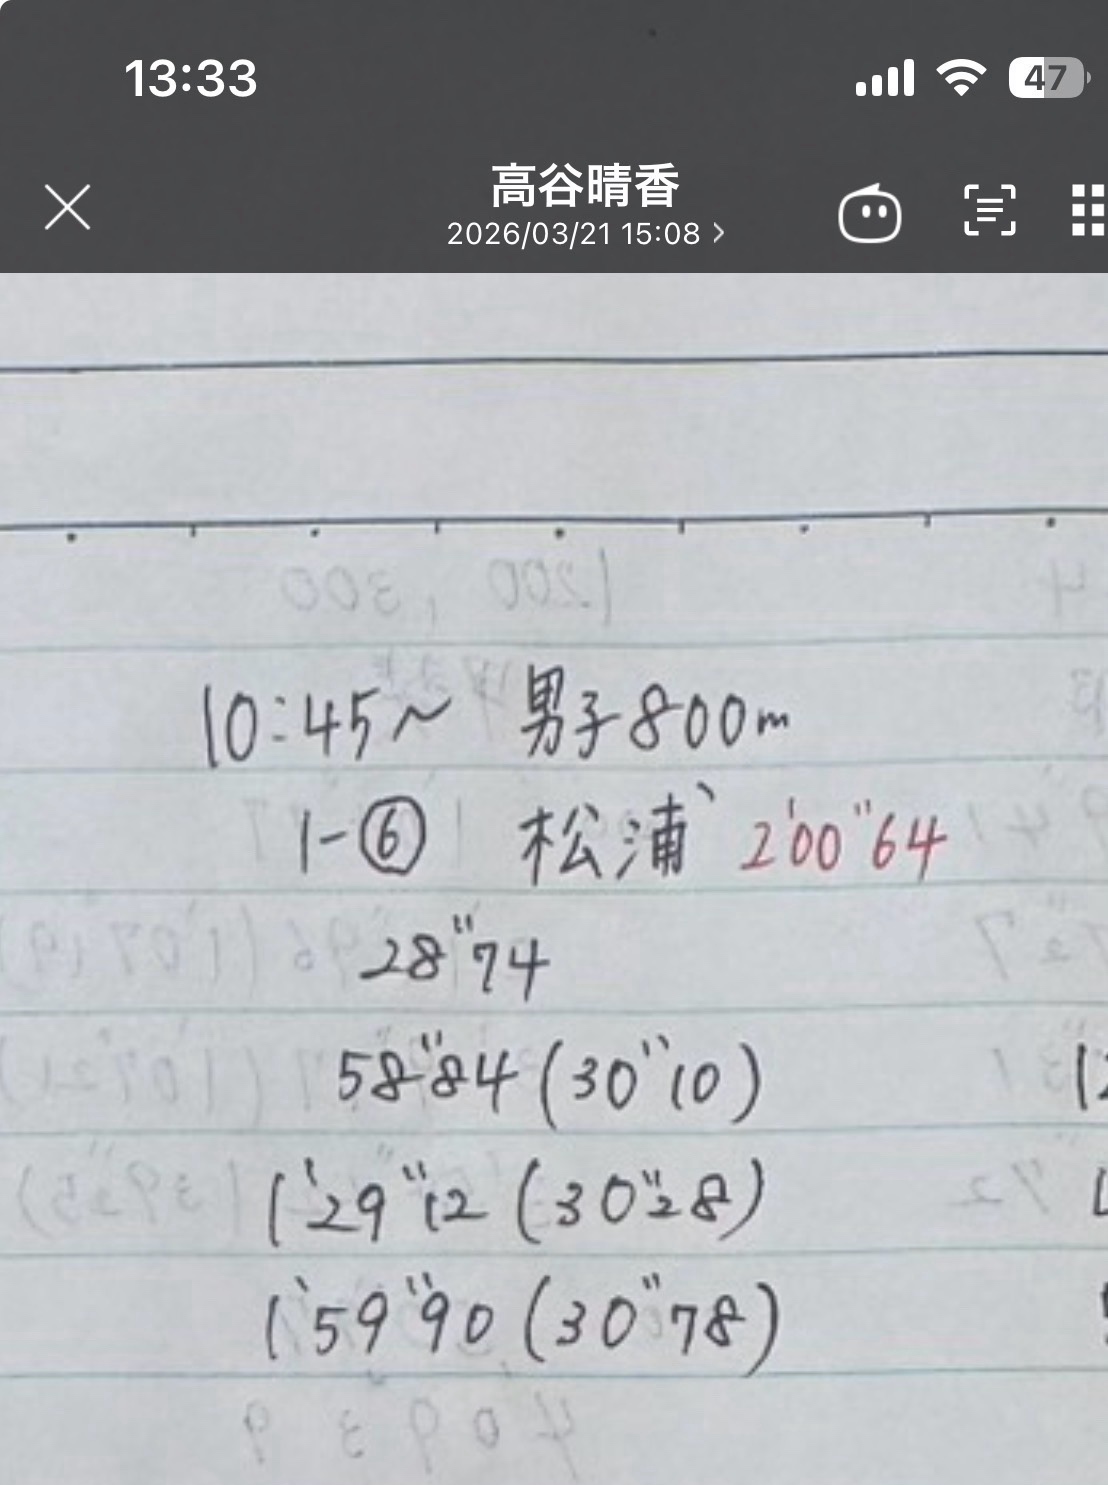 13:33
47
高谷晴香
2026/03/21 15:08 >
10:45~ 男子800m
1-⑥ 松浦 2'00"64
28"74
58"84 (30"10)
1'29"12 (30"28)
1'59"90 (30"78)